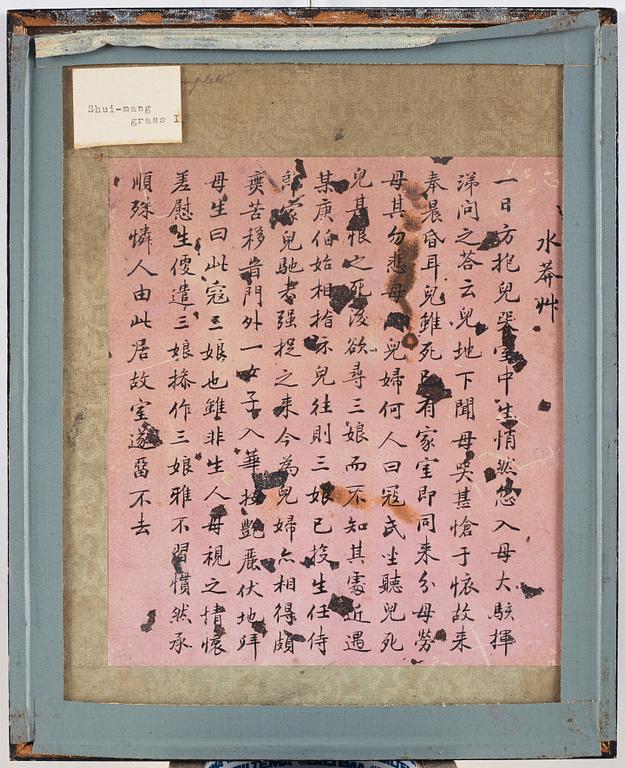 Shui-mang
grass I
水莽艸
一日方抱兒哭室中生悄然忽入母大駭揮
涕问之答云兒地下聞母哭甚愴于懷故来
奉晨昏耳兒雖死已有家室即同来分母勞
母其勿悲母兒婦何人曰寇氏坐聽兒死
兒甚恨之死後欲尋三娘而不知其處近遇
某庚伯始相指示兒往則三娘已投生任侍
郎家兒馳去强捉之来今為兒婦亦相得頗
無苦移時門外一女子入華妝艷麗伏地拜
母生曰此寇三娘也雖非生人母視之情懷
差慰生便遣三娘操作三娘雅不習慣然承
順殊憐人由此居故室遂留不去